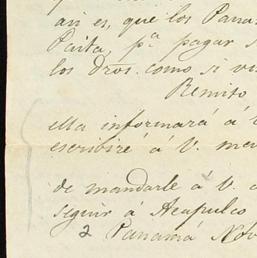 asi es, que los Pana
Paita, pª pagar s
los dros. como si vi
Remito
ella informará á
escribiré á V. me
de mandarle á V. a
seguir á Acapulco
2 Panamá Nov